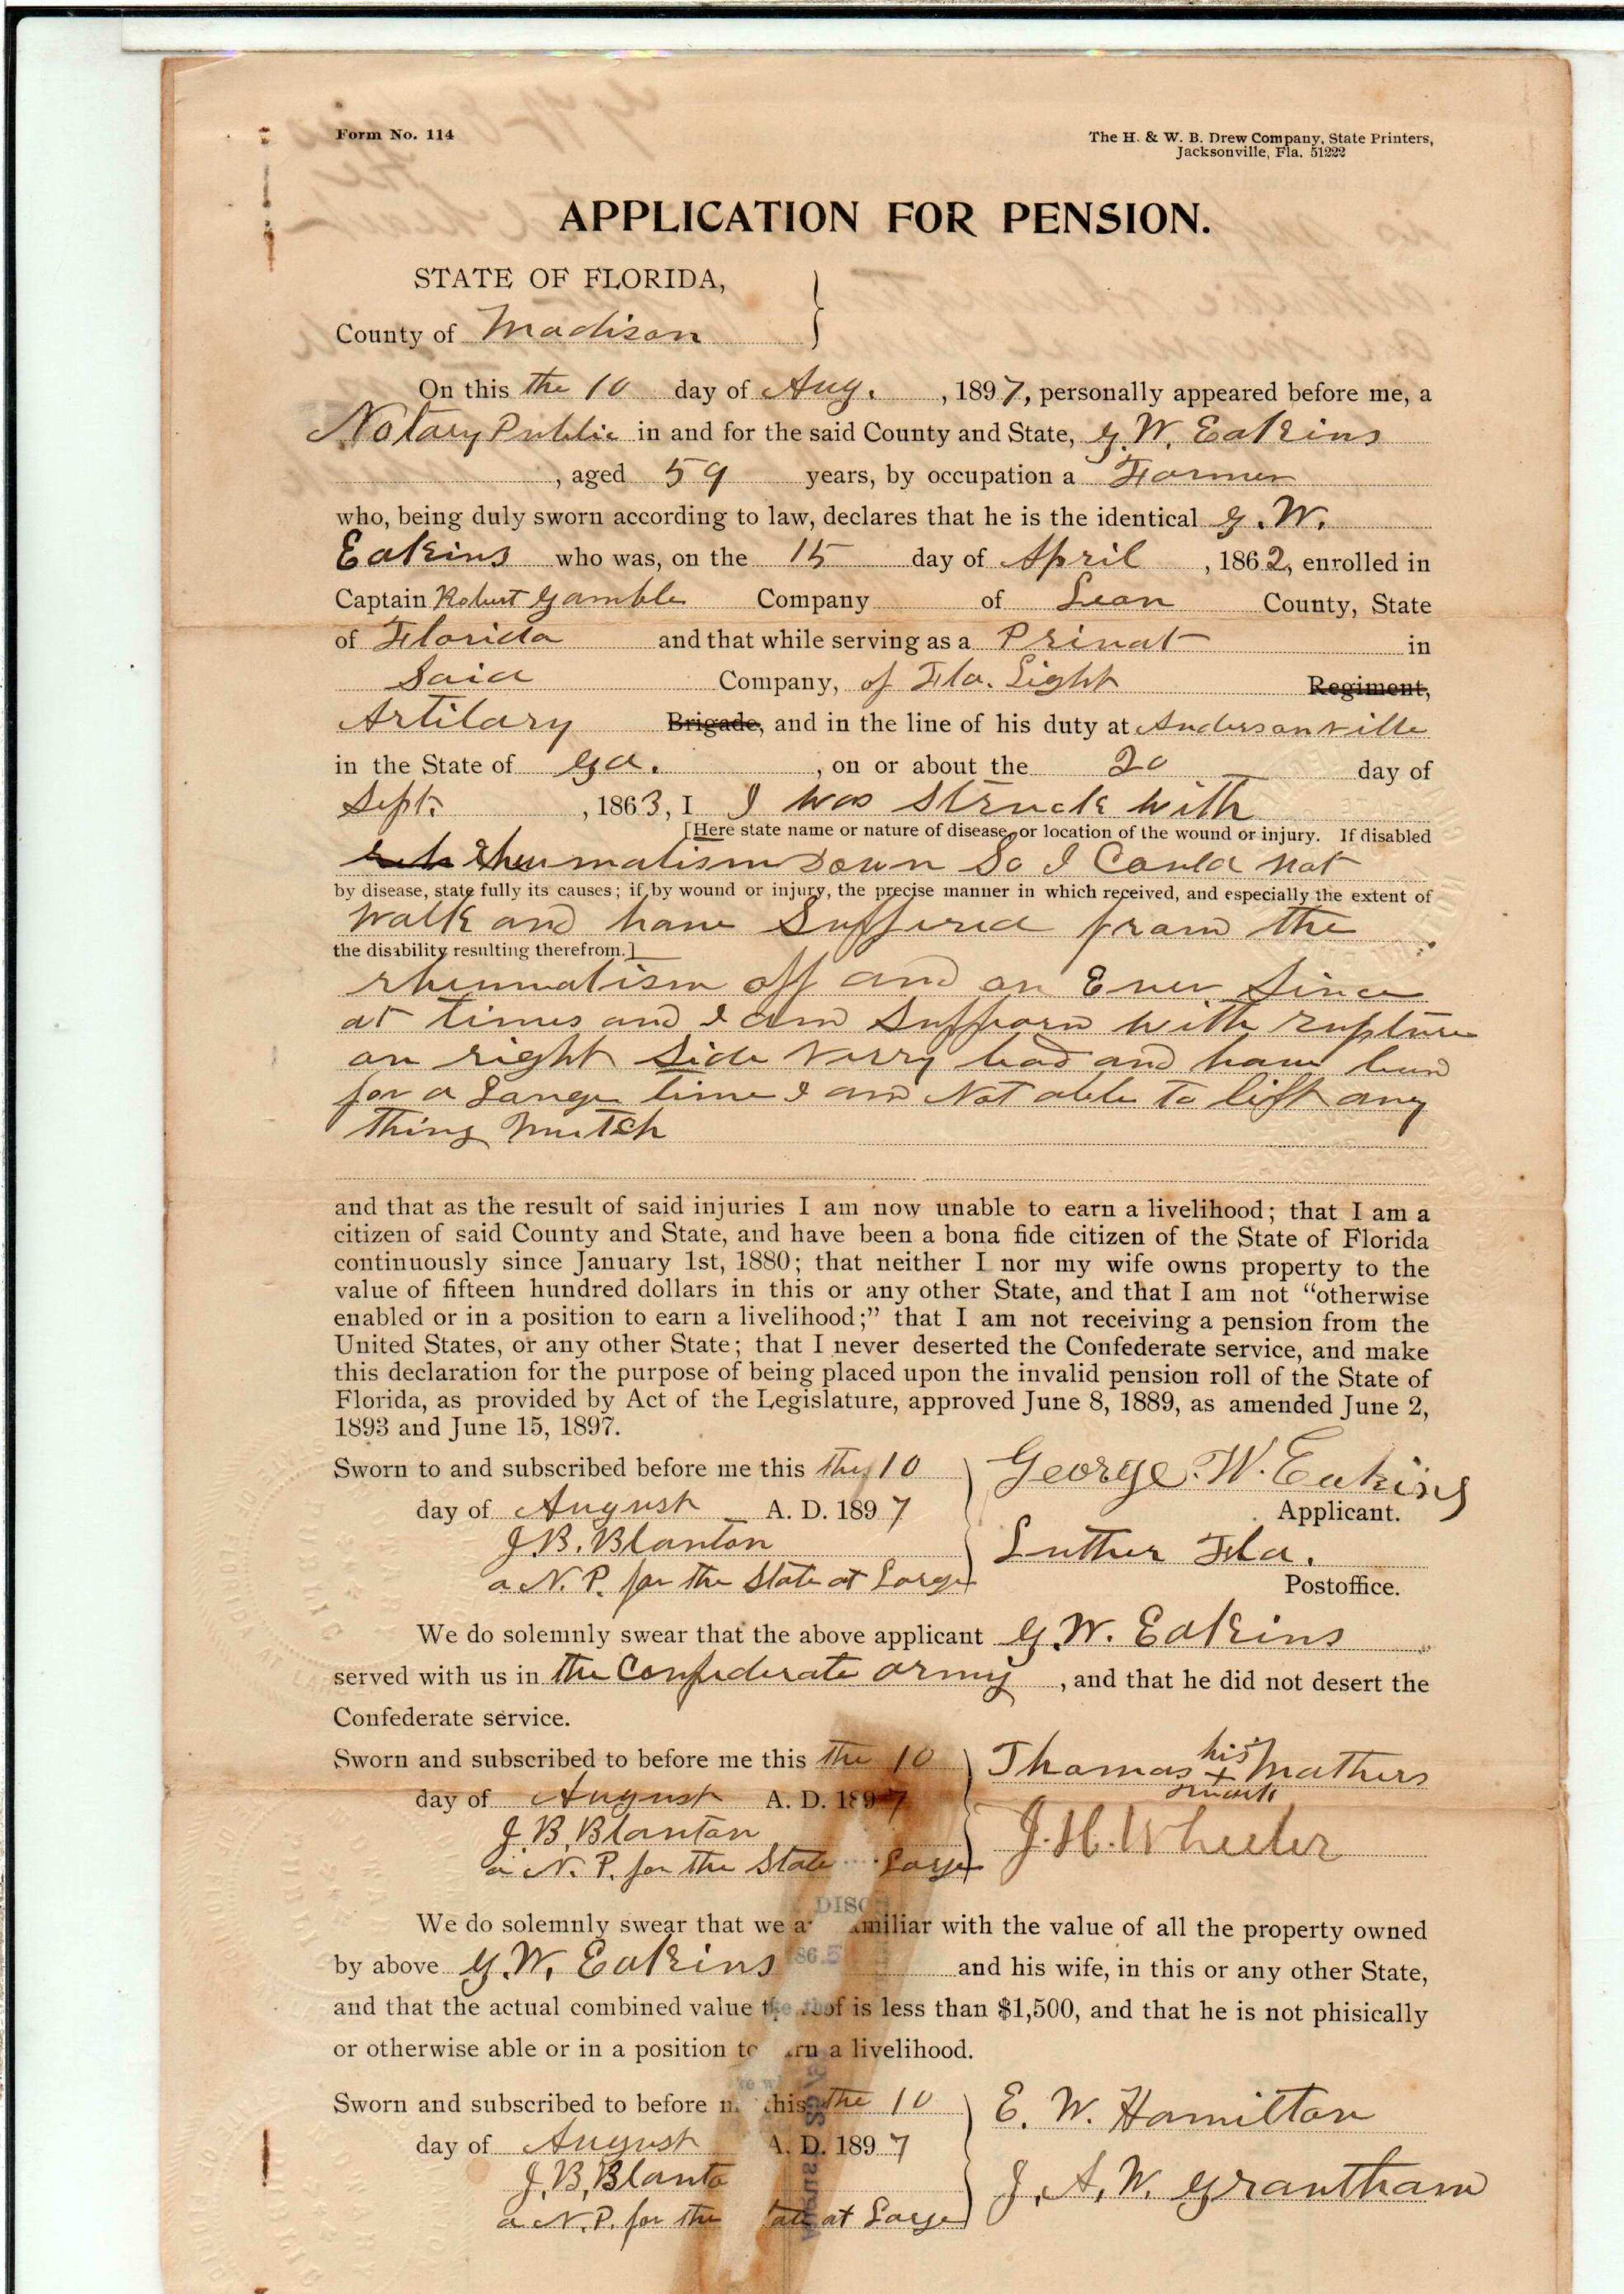 Form No. 114
The H. & W. B. Drew Company, State Printers,
Jacksonville, Fla. 51222
APPLICATION FOR PENSION.
STATE OF FLORIDA,
County of Madison
On this the 10 day of Aug. , 1897, personally appeared before me, a
Notary Public in and for the said County and State, G. W. Eakins
, aged 59 years, by occupation a Farmer
who, being duly sworn according to law, declares that he is the identical G. W.
Eakins who was, on the 15 day of April , 1862, enrolled in
Captain Robert Gamble Company of Leon County, State
of Florida and that while serving as a Privat in
Said Company, of Fla. Light Regiment,
Artilary Brigade, and in the line of his duty at Andersonville
in the State of Ga. , on or about the 20 day of
Sept. , 1863, I I was struck with
[Here state name or nature of disease, or location of the wound or injury. If disabled
rheumatism Down So I Could not
by disease, state fully its causes; if by wound or injury, the precise manner in which received, and especially the extent of
walk and have Suffered from the
the disability resulting therefrom.]
rheumatism off and on Ever Since
at times and I am Suffern with rupture
on right Side verry bad and have bun
for a Longe time I am Not able to lift any
thing mutch
and that as the result of said injuries I am now unable to earn a livelihood; that I am a
citizen of said County and State, and have been a bona fide citizen of the State of Florida
continuously since January 1st, 1880; that neither I nor my wife owns property to the
value of fifteen hundred dollars in this or any other State, and that I am not "otherwise
enabled or in a position to earn a livelihood;" that I am not receiving a pension from the
United States, or any other State; that I never deserted the Confederate service, and make
this declaration for the purpose of being placed upon the invalid pension roll of the State of
Florida, as provided by Act of the Legislature, approved June 8, 1889, as amended June 2,
1893 and June 15, 1897.
Sworn to and subscribed before me this the 10 George. W. Eakins
day of August A. D. 1897 Applicant.
J. B. Blanton Luther Fla.
a N. P. for the State at Large Postoffice.
We do solemnly swear that the above applicant G. W. Eakins
served with us in the Confederate army , and that he did not desert the
Confederate service.
Sworn and subscribed to before me this the 10 Thomas his x mark Mathers
day of August A. D. 1897
J. B. Blanton J. H. Wheeler
a N. P. for the State Large
DISC
We do solemnly swear that we a miliar with the value of all the property owned
by above G. W. Eakins 865 and his wife, in this or any other State,
and that the actual combined value the of is less than $1,500, and that he is not phisically
or otherwise able or in a position to rn a livelihood.
Sworn and subscribed to before m this the 10 E. W. Hamilton
day of August A. D. 1897
J. B. Blanto J. A. W. Grantham
a N. P. for the tate at Large